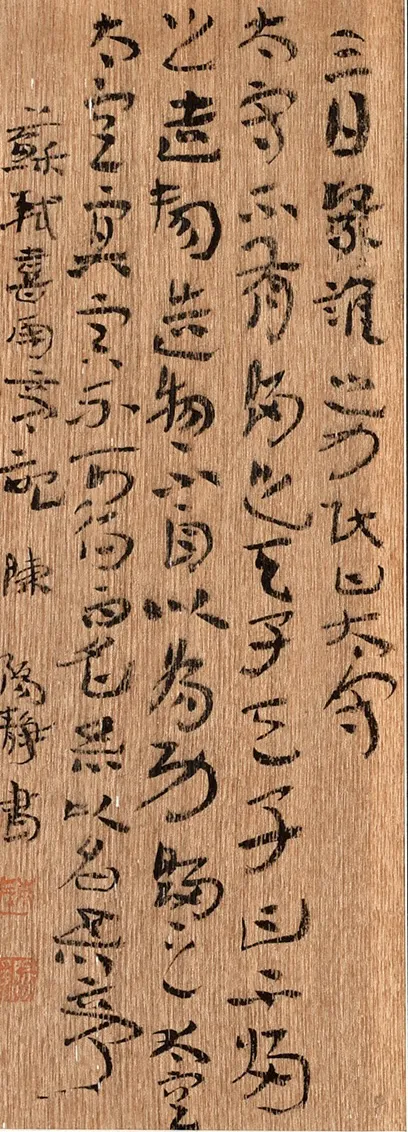 三日繄誰之力民曰太守
太守不有歸之天子天子曰不歸
之造物造物不自以為功歸之太空
太空冥冥不可得而名吾以名吾亭
蘇軾喜雨亭記 陳 靜書